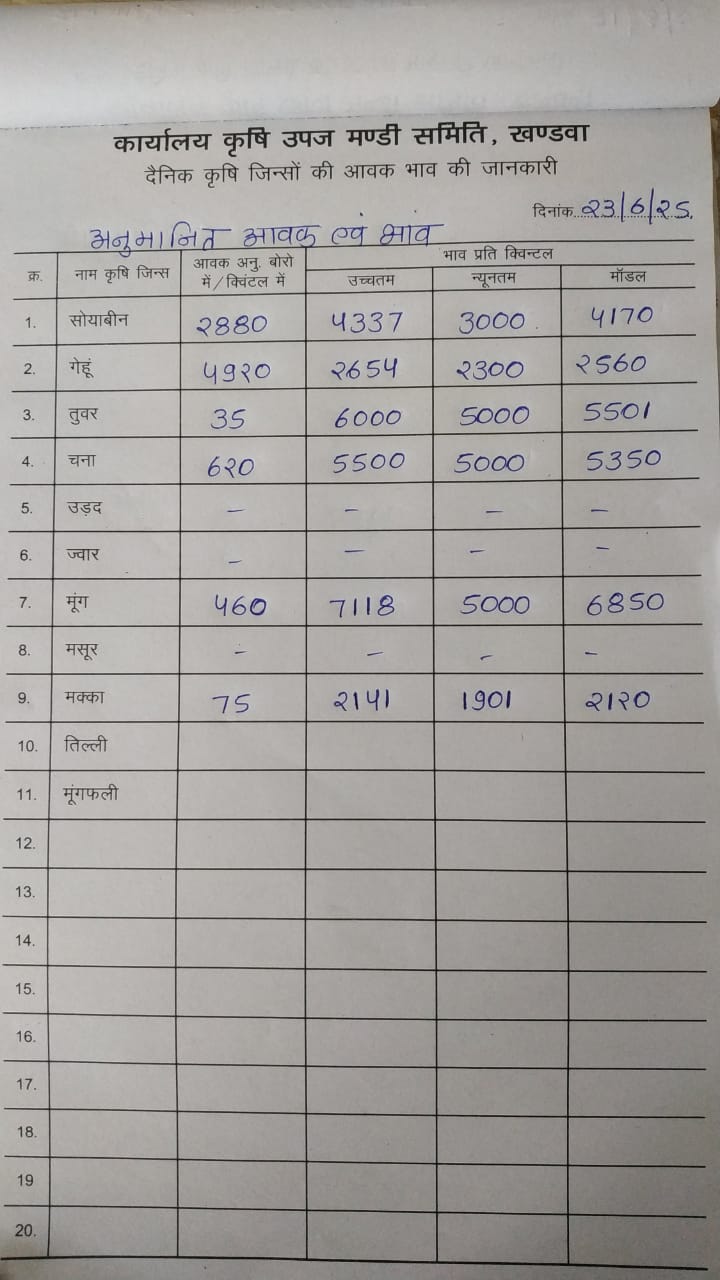 कार्यालय कृषि उपज मण्डी समिति, खण्डवा
दैनिक कृषि जिन्सों की आवक भाव की जानकारी
दिनांक 23/6/25.
अनुमानित आवक एवं भाव
क्र. नाम कृषि जिन्स आवक अनु. बोरो में/क्विंटल में भाव प्रति क्विन्टल
उच्चतम न्यूनतम मॉडल
1. सोयाबीन 2880 4337 3000 4170
2. गेहूं 4920 2654 2300 2560
3. तुवर 35 6000 5000 5501
4. चना 620 5500 5000 5350
5. उड़द – – – –
6. ज्वार – – – –
7. मूंग 460 7118 5000 6850
8. मसूर – – – –
9. मक्का 75 2141 1901 2120
10. तिल्ली
11. मूंगफली
12.
13.
14.
15.
16.
17.
18.
19
20.